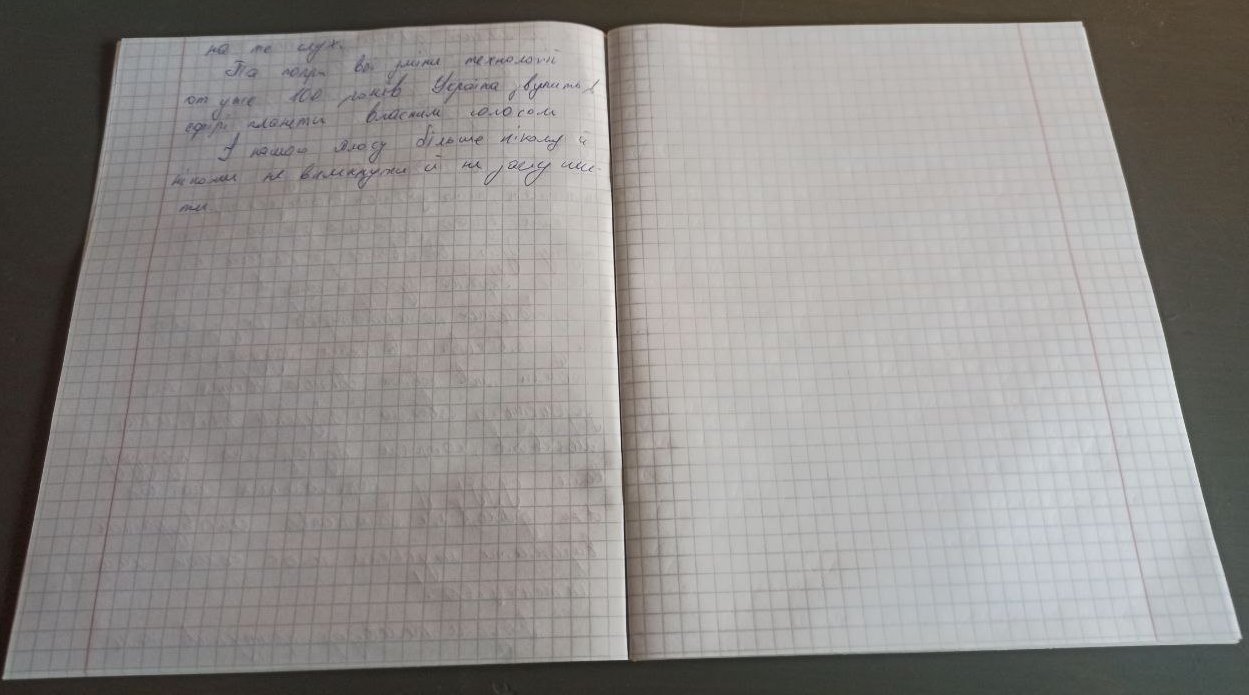 на те слух.
Та попри всі зміни технологій
от уже 100 років Україна звучить в
ефірі планети власним голосом
І нашого голосу більше нікому й
ніколи не вимкнути й не заглуши-
ти.